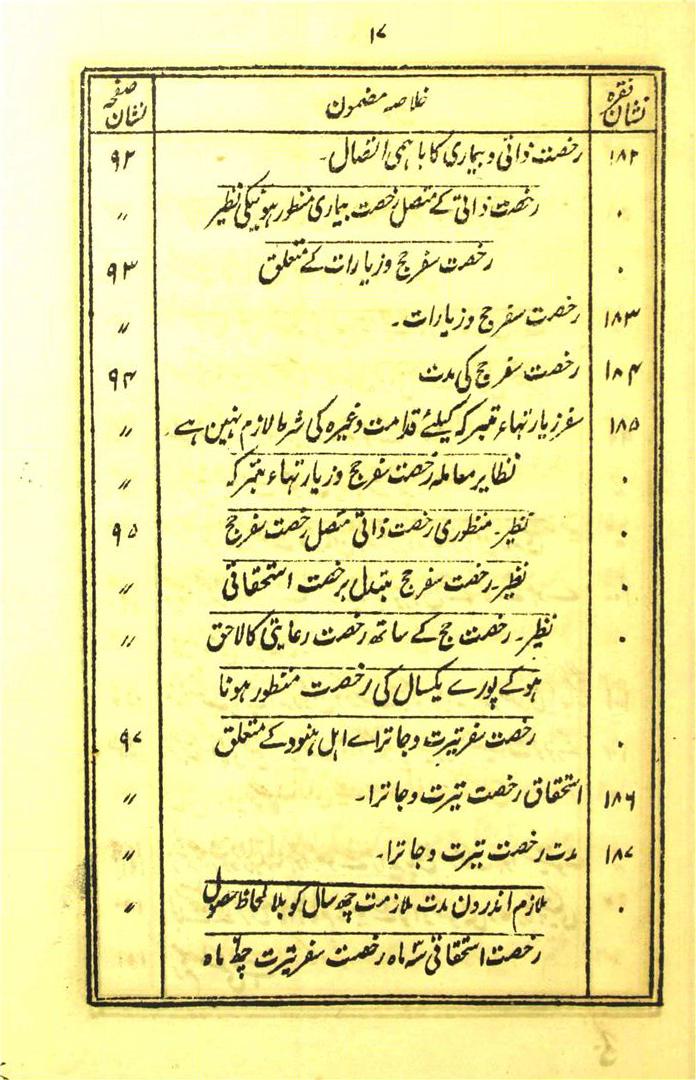 ۱۷
نشان فقرہ خلاصہ مضمون نشان صفحہ
۱۸۲ رخصت ذاتی و بیماری کا باہمی اتصال۔ ۹۲
۰ رخصت ذاتی کے متصل رخصت بیماری منظور ہونیکی نظیر 〃
۰ رخصت سفر حج و زیارات کے متعلق ۹۳
۱۸۳ رخصت سفر حج و زیارات۔ 〃
۱۸۴ رخصت سفر حج کی مدت ۹۴
۱۸۵ سفر زیارتہاء متبرکہ کیلئے قدامت وغیرہ کی شرط لازم نہین ہے۔ 〃
۰ نظایر معاملہ رخصت سفر حج و زیارتہاء متبرکہ 〃
۰ نظیر۔ منظوری رخصت ذاتی متصل رخصت سفر حج ۹۵
۰ نظیر۔ رخصت سفر حج مبتدل برخصت استحقاقی 〃
۰ نظیر۔ رخصت حج کے ساتھ رخصت رعایتی کالاحق 〃
ہوکے پورے یکسال کی رخصت منظور ہونا
۰ رخصت سفر تیرت و جاترا اہل ہنود کے متعلق ۹۷
۱۸۶ استحقاق رخصت تیرت و جاترا۔ 〃
۱۸۷ مدت رخصت تیرت و جاترا۔ 〃
۰ ملازم اندرون مدت ملازمت چھ سال کو بلا لحاظ حصول 〃
رخصت استحقاقی سہ ماہ رخصت سفر تیرت چھ ماہ